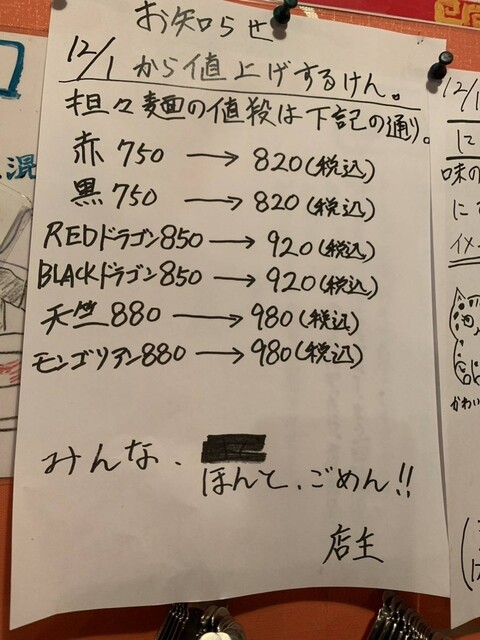 お知らせ
12/1 から値上げするけん。
担々麺の値段は下記の通り。
赤 750 → 820(税込)
黒 750 → 820(税込)
REDドラゴン850 → 920(税込)
BLACKドラゴン850 → 920(税込)
天竺 880 → 980(税込)
モンゴリアン880 → 980(税込)
みんな、
ほんと、ごめん!!
店主
12/1
に
味の
にて
イメ
かわい
混